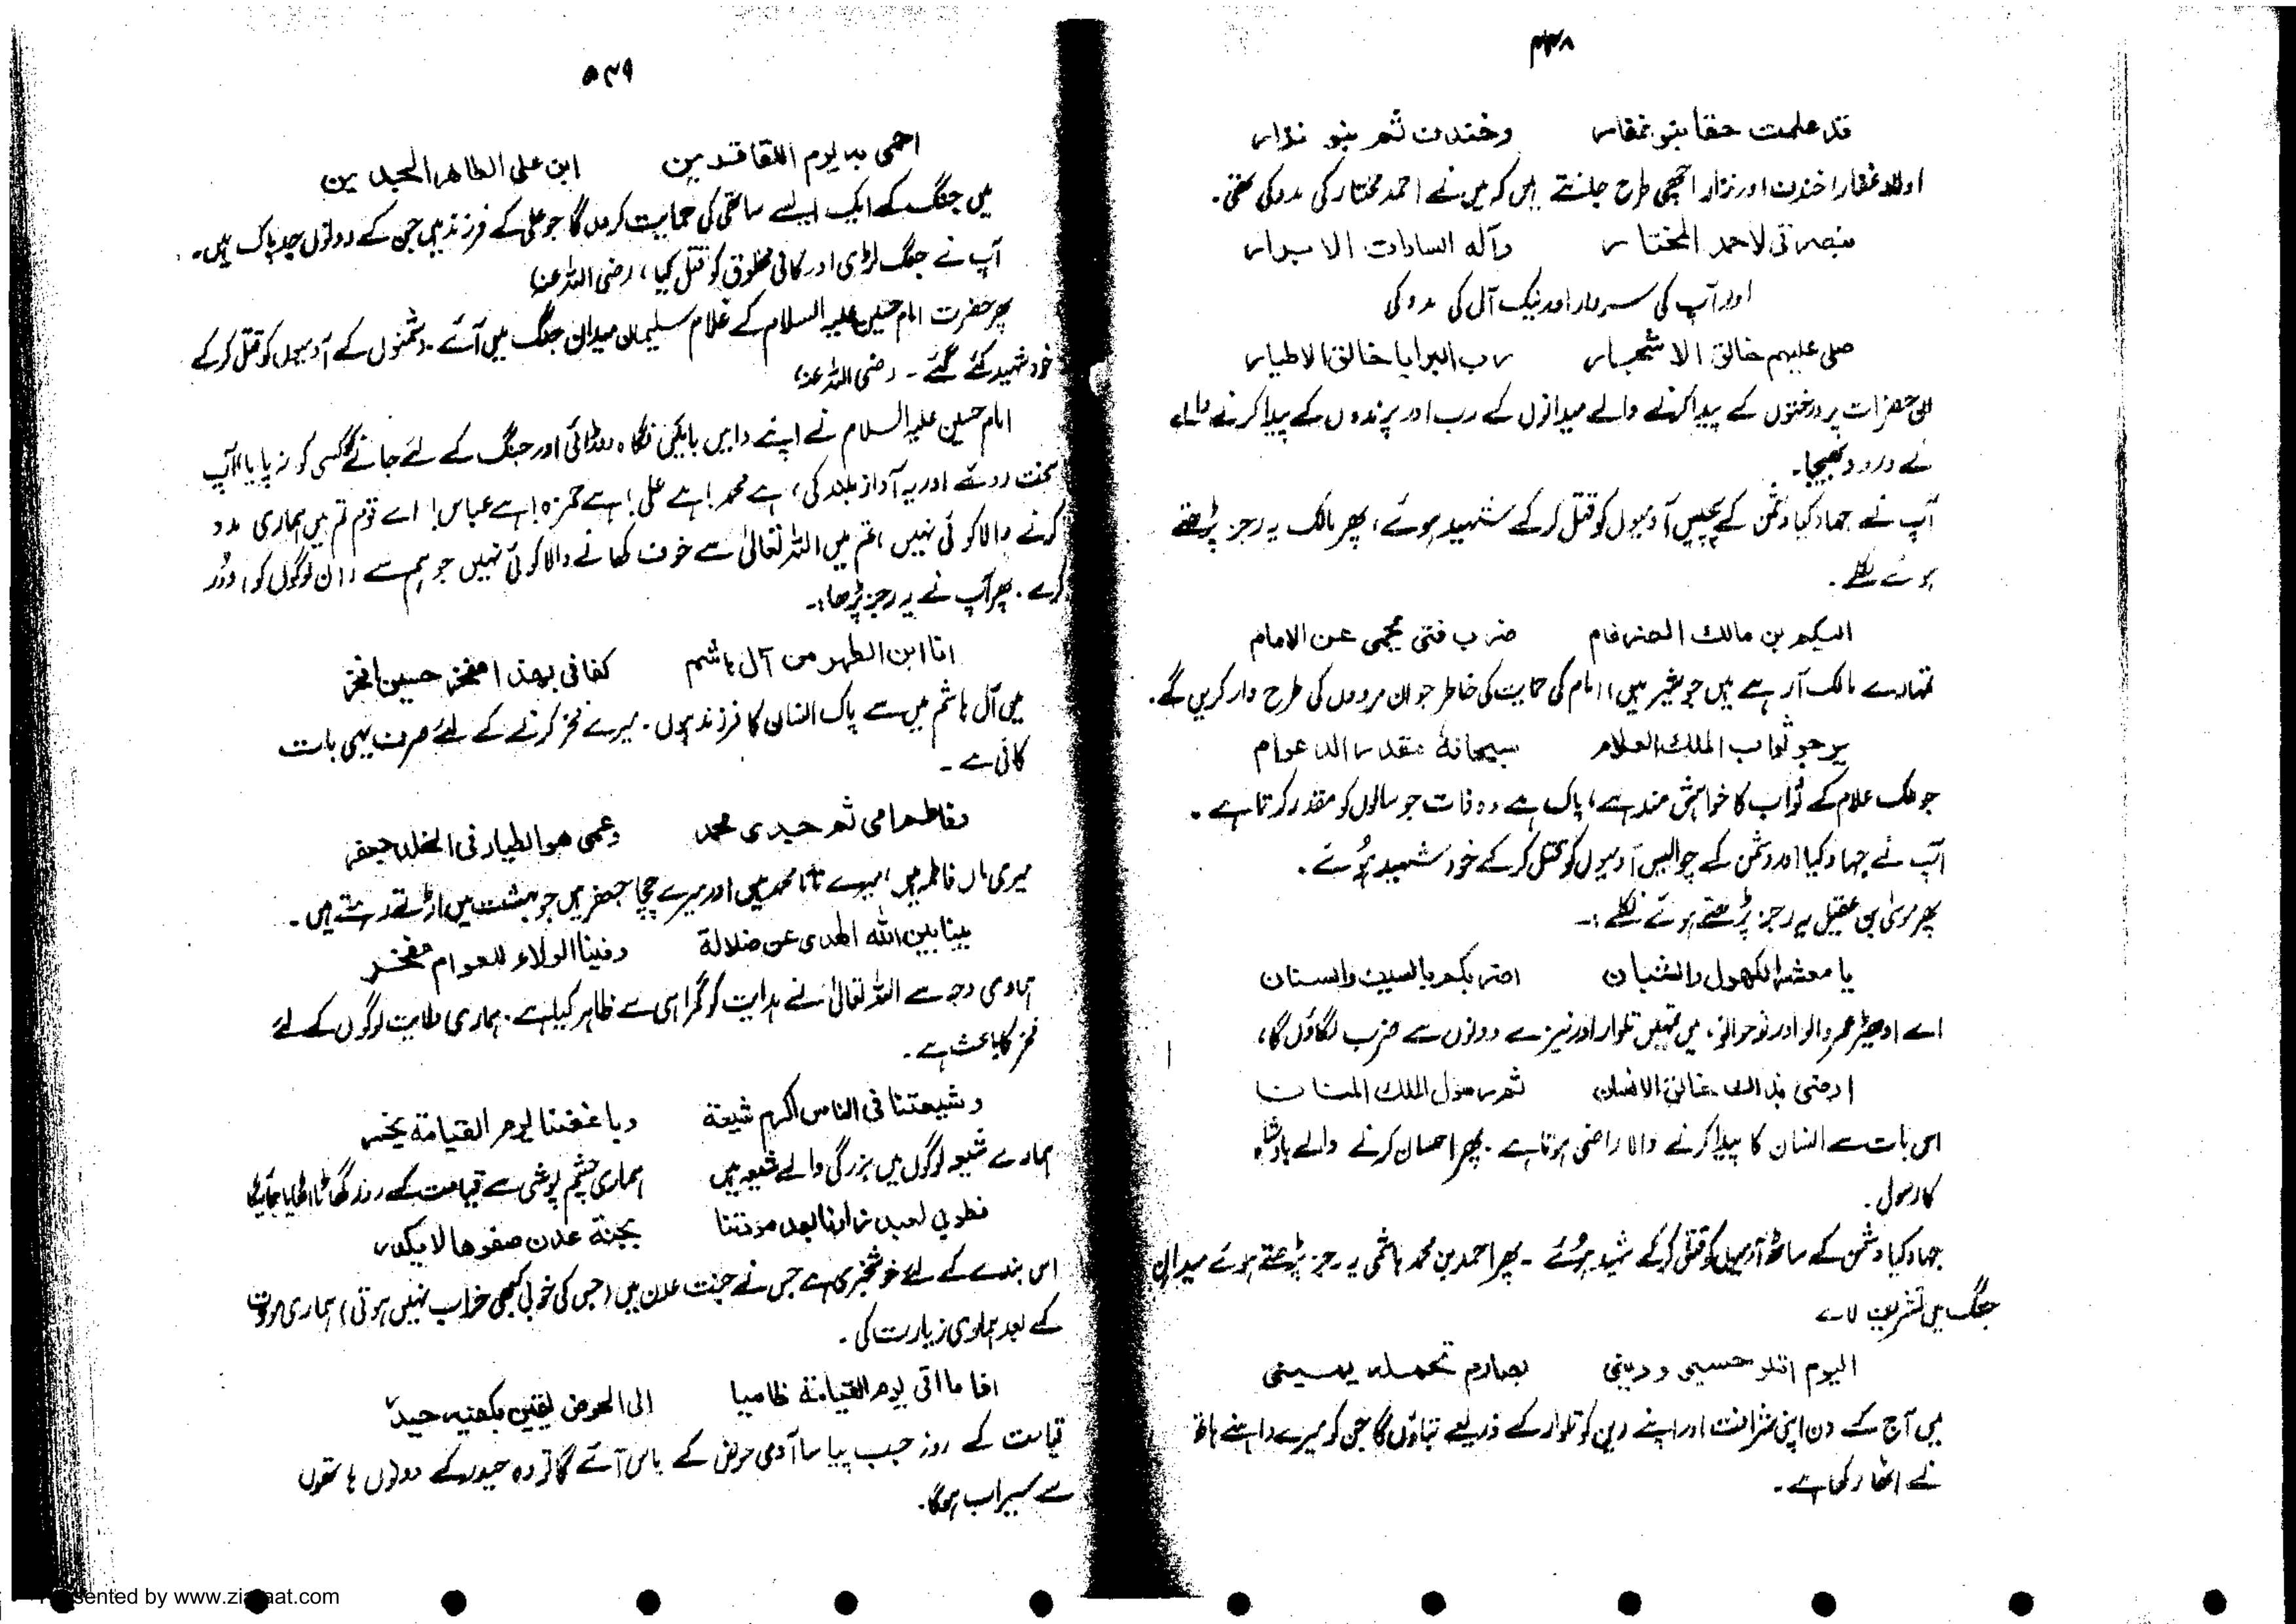 ۴۳۸
قد علمت حقا بنو غفار وخندف ثم بنو نزار
اولاد غفار، خندف اور نزار اچھی طرح جانتے ہیں کہ میں نے احمد مختار کی مدد کی تھی۔
بنصرتی لاحمد المختار وآله السادات الابرار
اور آپ کی سردار اور نیک آل کی مدد کی
صلی علیهم خالق الاشجار رب البرایا خالق الاطیار
ان حضرات پر درختوں کے پیدا کرنے والے میدانوں کے رب اور پرندوں کے پیدا کرنے والے
نے درود بھیجا۔
آپ نے جہاد کیا دشمن کے پچیس آدمیوں کو قتل کرکے شہید ہوئے، پھر مالک یہ رجز پڑھتے
ہوئے نکلے۔
الیکم بن مالك الضرغام ضرب فتی یحمی عن الامام
تمہارے مالک آرہے ہیں جو شیر ہیں، امام کی حمایت کی خاطر جوان مردوں کی طرح وار کریں گے۔
یرجو ثواب الملك العلام سبحانهٔ مقدر الاعوام
جو ملک علام کے ثواب کا خواہش مند ہے، پاک ہے وہ ذات جو سالوں کو مقدر کرتا ہے۔
آپ نے جہاد کیا اور دشمن کے چوالیس آدمیوں کو قتل کرکے خود شہید ہوئے۔
پھر موسیٰ بن عقیل یہ رجز پڑھتے ہوئے نکلے :۔
یا معشر الکهول والشبان اضربکم بالسیف والسنان
اے ادھیڑ عمر والو اور نوجوانو، میں تمہیں تلوار اور نیزے دونوں سے ضرب لگاؤں گا،
ارضی بذاك خالق الانسان ثم رسول الملك المنان
اس بات سے انسان کا پیدا کرنے والا راضی ہوتا ہے۔ پھر احسان کرنے والے بادشاہ
کا رسول۔
جہاد کیا دشمن کے ساٹھ آدمیوں کو قتل کرکے شہید ہوئے ۔ پھر احمد بن محمد ہاشمی یہ رجز پڑھتے ہوئے میدان
جنگ میں تشریف لائے
الیوم اتلو حسبی و دینی بصارم تحمله یمینی
میں آج کے دن اپنی شرافت اور اپنے دین کو تلوار کے ذریعے بتاؤں گا جن کو میرے داہنے ہاتھ
نے اٹھا رکھا ہے۔
۵۳۹
احمی به یوم اللقا قدین ابن علی الطاهر الجدین
میں جنگ کے ایک ایسے ساتھی کی حمایت کروں گا جو علی کے فرزند ہیں جن کے دونوں جد پاک ہیں۔
آپ نے جنگ لڑی اور کافی مخلوق کو قتل کیا، رضی اللہ عنہ
پھر حضرت امام حسین علیہ السلام کے غلام سلیمان میدان جنگ میں آئے۔ دشمنوں کے آدمیوں کو قتل کرکے
خود شہید کئے گئے ۔ رضی اللہ عنہ
امام حسین علیہ السلام نے اپنے دائیں بائیں نگاہ دوڑائی اور جنگ کے لئے جانے کو کسی کو نہ پایا، آپ
سخت روئے اور یہ آواز بلند کی، ہے محمد! ہے علی! ہے حمزہ! ہے عباس! اے قوم تم میں ہماری مدد
کرنے والا کوئی نہیں، تم میں اللہ تعالیٰ سے خوف کھانے والا کوئی نہیں جو ہم سے (ان لوگوں کو) دُور
کرے۔ پھر آپ نے یہ رجز پڑھا:۔
انا ابن الطهر من آل ہاشم کفانی بهذا مفخر حسین افخر
میں آل ہاشم میں سے پاک انسان کا فرزند ہوں۔ میرے فخر کرنے کے لئے صرف یہی بات
کافی ہے ۔
وفاطم امی ثم جدی محمد وعمی هو الطیار فی الخلد جعفر
میری ماں فاطمہ ہیں، میرے نانا محمد ہیں اور میرے چچا جعفر ہیں جو بہشت میں اڑتے رہتے ہیں ۔
بینا بین الله الهدی عن ضلالة وفینا الولاء للعوام مفخر
ہماری وجہ سے اللہ تعالیٰ نے ہدایت کو گمراہی سے ظاہر کیا ہے۔ ہماری ولایت لوگوں کے لئے
فخر کا باعث ہے۔
وشیعتنا فی الناس اکرم شیعة وباغضنا یوم القیامة یخسر
ہمارے شیعہ لوگوں میں بزرگی والے شیعہ ہیں ہماری چشم پوشی سے قیامت کے روز گھاٹا اٹھایا جائیگا
فطوبی لعبد زارنا بعد موتنا بجنة عدن صفوها لا یکدر
اس بندے کے لئے خوشخبری ہے جس نے جنت عدن میں (جس کی خوبی کبھی خراب نہیں ہوتی) ہماری موت
کے بعد ہماری زیارت کی ۔
اذا ما اتی یوم القیامة ظامیا الی الحوض یسقیه بکفیه حیدر
قیامت کے روز جب پیاسا آدمی حوض کے پاس آئے گا تو وہ حیدر کے دونوں ہاتھوں
سے سیراب ہوگا۔
sented by www.zia aat.com